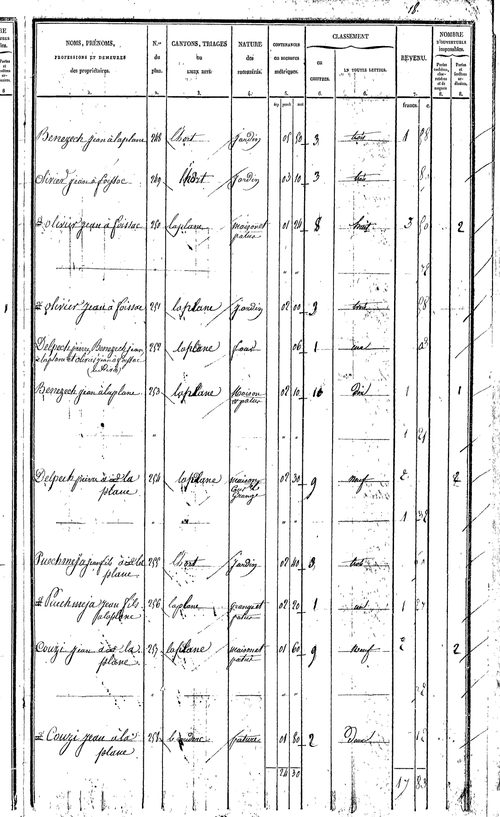 18.
NOMS, PRÉNOMS,
PROFESSIONS ET DEMEURES
des propriétaires.
N.os
du
plan.
CANTONS, TRIAGES
ou
LIEUX DITS.
NATURE
des
CONTENANCES
en mesures
métriques.
CLASSEMENT
en
CHIFFRES.
EN TOUTES LETTRES.
REVENU.
NOMBRE
D'OUVERTURES
imposables.
1. 2. 3. 4. 5. 6. 7. 8.
francs. c.
Benezech jean à laplane 248 Lhort Jardin 05 50 3 trois 1
olivier jean à foissac 249 Lhort Jardin 03 10 3 trois
d° olivier jean à foissac 250 laplane maison et 01 24 8 huit 3 2
patus
d° olivier jean à foissac 251 laplane Jardin 02 00 3 trois
Delpech pierre, Benezech jean 252 laplane four 06 1 un
à laplane et olivier jean à foissac
Benezech jean à laplane 253 laplane Maison 02 10 10 dix 1 1
et patus
1 21
Delpech pierre à la 254 laplane maison 02 30 9 neuf 2 2
plane
grange
1 32
Puechmeja jean fils à la 255 Lhort Jardin 02 40 3 trois
plane
d° Puechmeja jean fils 256 laplane grange et 02 20 1 un 1 27
à laplane patus
Couzi jean à la 257 laplane maison et 01 60 9 neuf 2 2
plane patus
d° Couzi jean à la 258 pature 01 80 2 Deux 12
plane
24 30
17 83